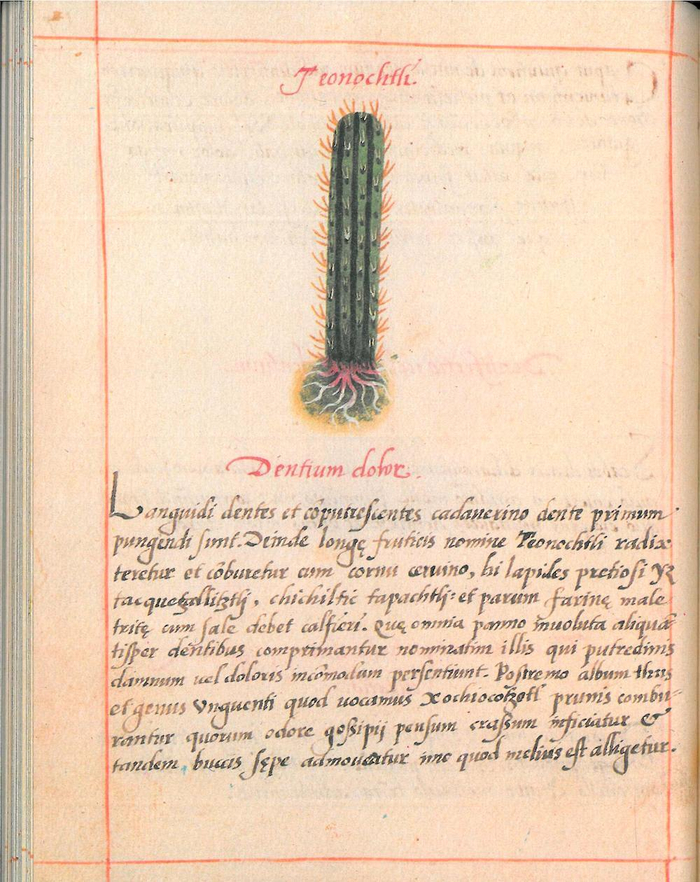 Teonochtli.
Dentium dolor.
Languidi dentes et coputrescentes cadauerino dente primum
pungendi sunt. Deinde longę fruticis nomine Teonochtli radix
teretur et cōburetur cum cornu ceruino, hi lapides pretiosi Yz
tac quetzalliztli, chichiltic tapachtli: et parum farinę male
tritę cum sale debet calfieri. Quę omnia panno inuoluta aliquā
tisper dentibus comprimantur nominatim illis qui putredinis
damnum uel doloris incōmodum persentiunt. Postremo album thus
et genus Vnguenti quod uocamus Xochiocotzotl prunis combu-
rantur quorum odore gossipij pensum crassum inficiatur &
tandem buccis sępe admoueatur imo quod melius est alligetur.